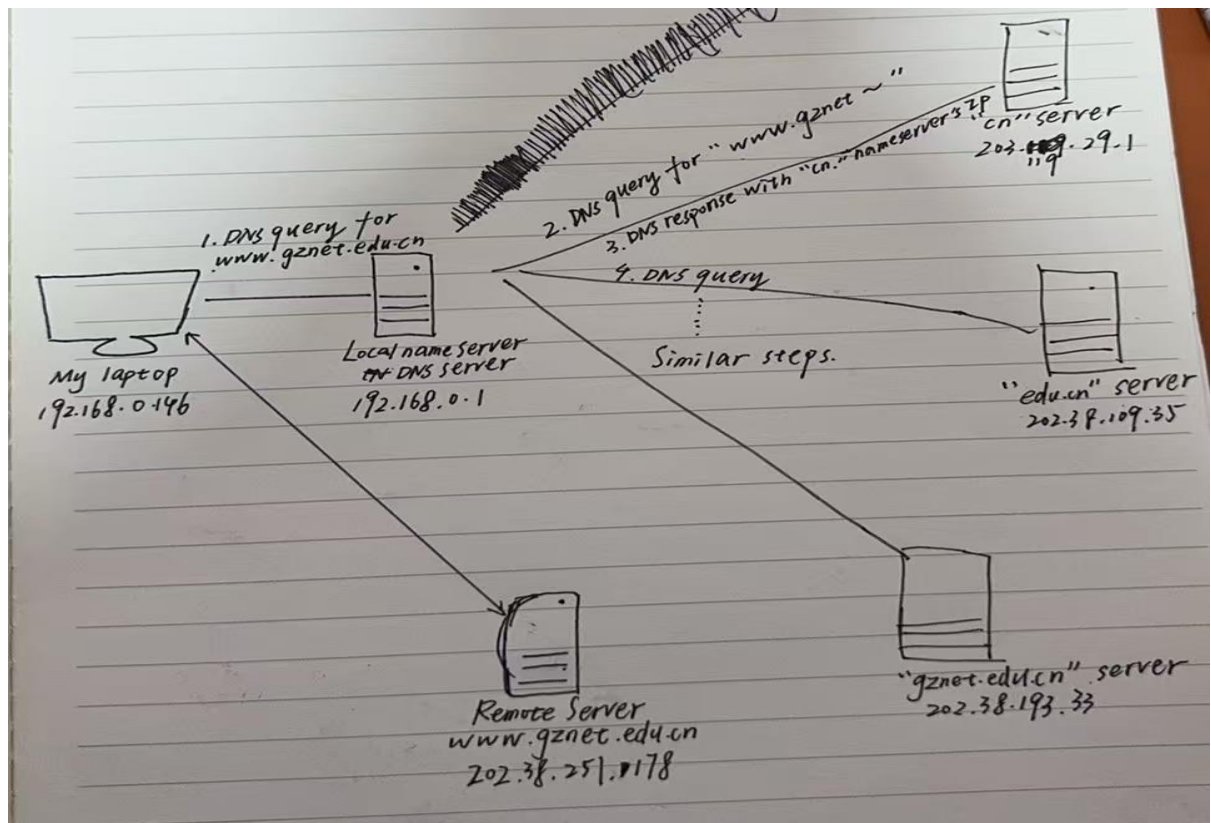 1. DNS query for
www.gznet.edu.cn
2. DNS query for "www.gznet ~"
3. DNS response with "cn." nameserver's IP
4. DNS query
Similar steps.
"cn" server
203.119.29.1
My laptop
192.168.0.146
Local name server
DNS server
192.168.0.1
"edu.cn" server
202.38.109.35
"gznet.edu.cn" server
202.38.193.33
Remote Server
www.gznet.edu.cn
202.38.251.178